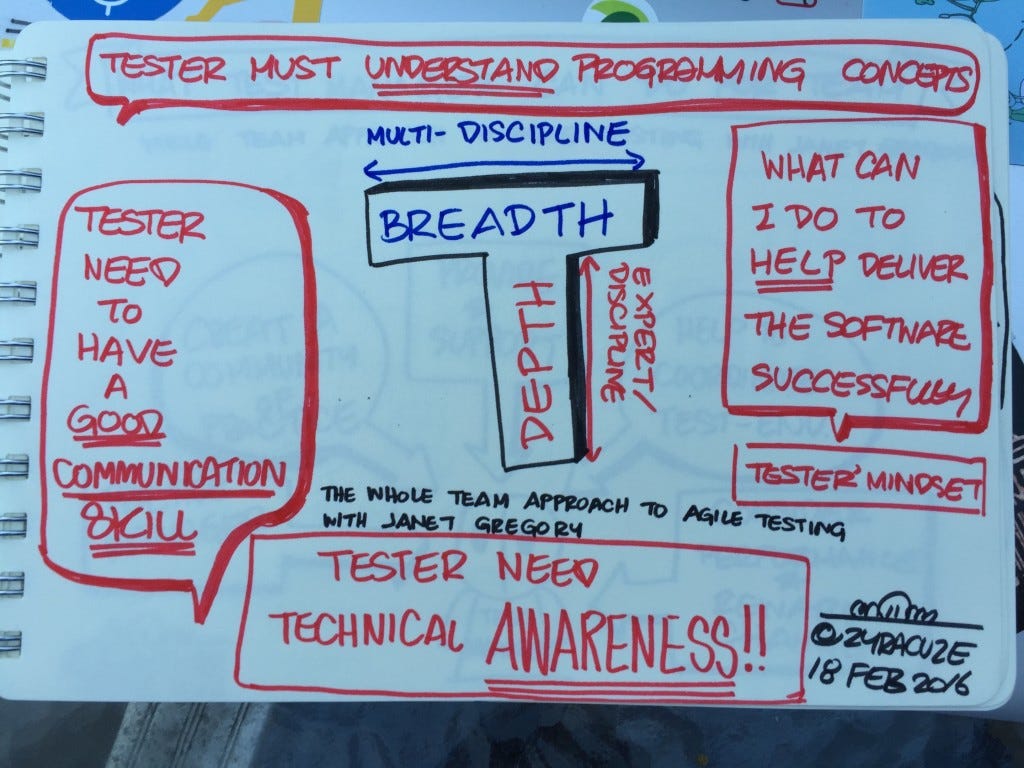 TESTER MUST UNDERSTAND PROGRAMMING CONCEPTS
MULTI-DISCIPLINE
BREADTH
DEPTH
EXPERT/
DISCIPLINE
TESTER
NEED
TO
HAVE
A
GOOD
COMMUNICATION
SKILL
WHAT CAN
I DO TO
HELP DELIVER
THE SOFTWARE
SUCCESSFULLY
TESTER' MINDSET
THE WHOLE TEAM APPROACH TO AGILE TESTING
WITH JANET GREGORY
TESTER NEED
TECHNICAL AWARENESS!!
@ZYRACUZE
18 FEB 2016